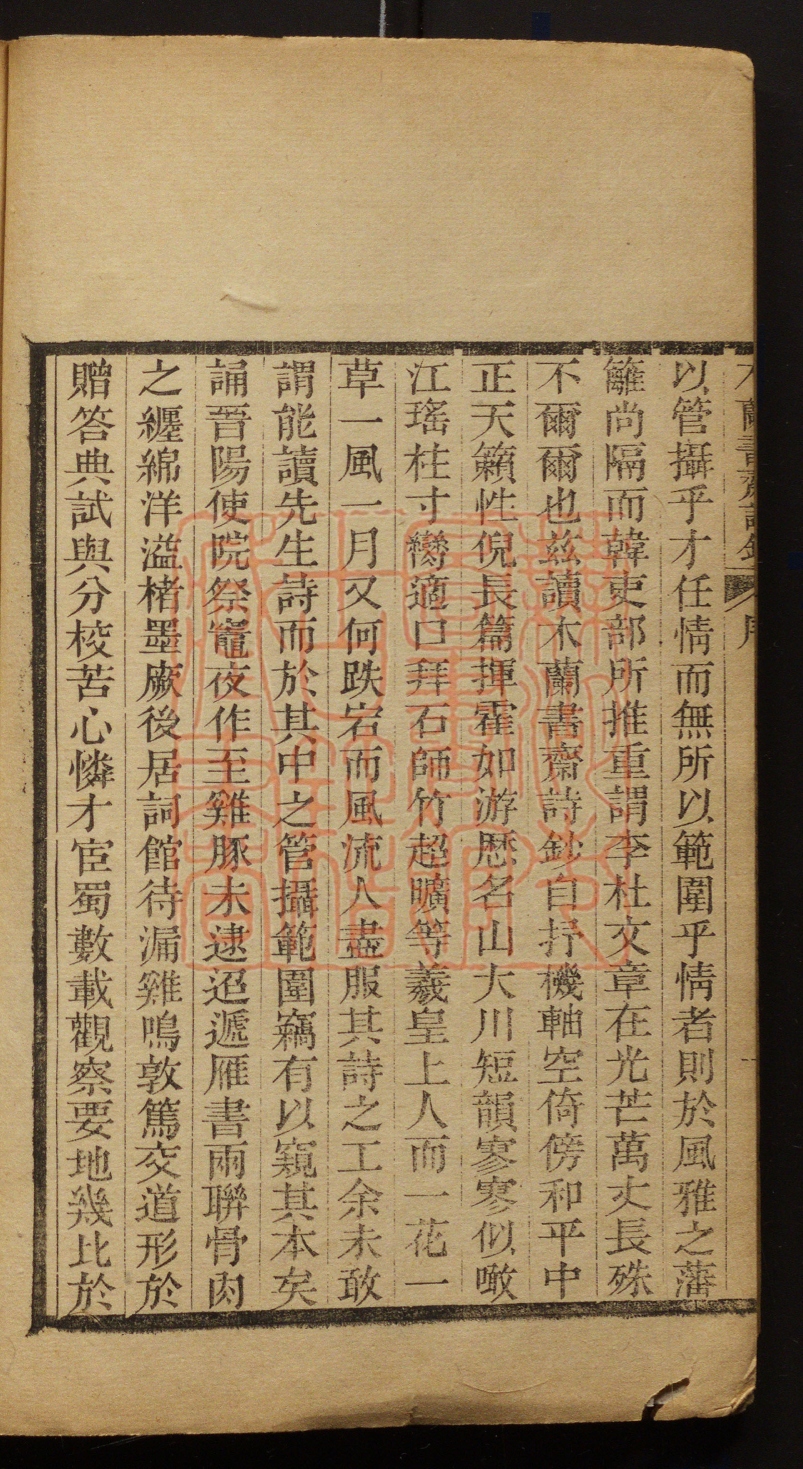 木蘭書齋詩鈔 序
以管攝乎才任情而無所以範圍乎情者則於風雅之藩
籬尚隔而韓吏部所推重謂李杜文章在光芒萬丈長殊
不爾爾也兹讀木蘭書齋詩鈔自抒機軸空倚傍和平中
正天籟性倪長篇揮霍如游歷名山大川短韻寥寥似噉
江瑤柱寸臠適口拜石師竹超曠等羲皇上人而一花一
草一風一月又何跌宕而風流人盡服其詩之工余未敢
謂能讀先生詩而於其中之管攝範圍竊有以窺其本矣
誦晉陽使院祭竈夜作至雞豚未逮迢遞雁書雨聯骨肉
之纏綿洋溢楮墨厥後居詞館待漏雞鳴敦篤交道形於
贈答典試與分校苦心憐才宦蜀數載觀察要地幾比於